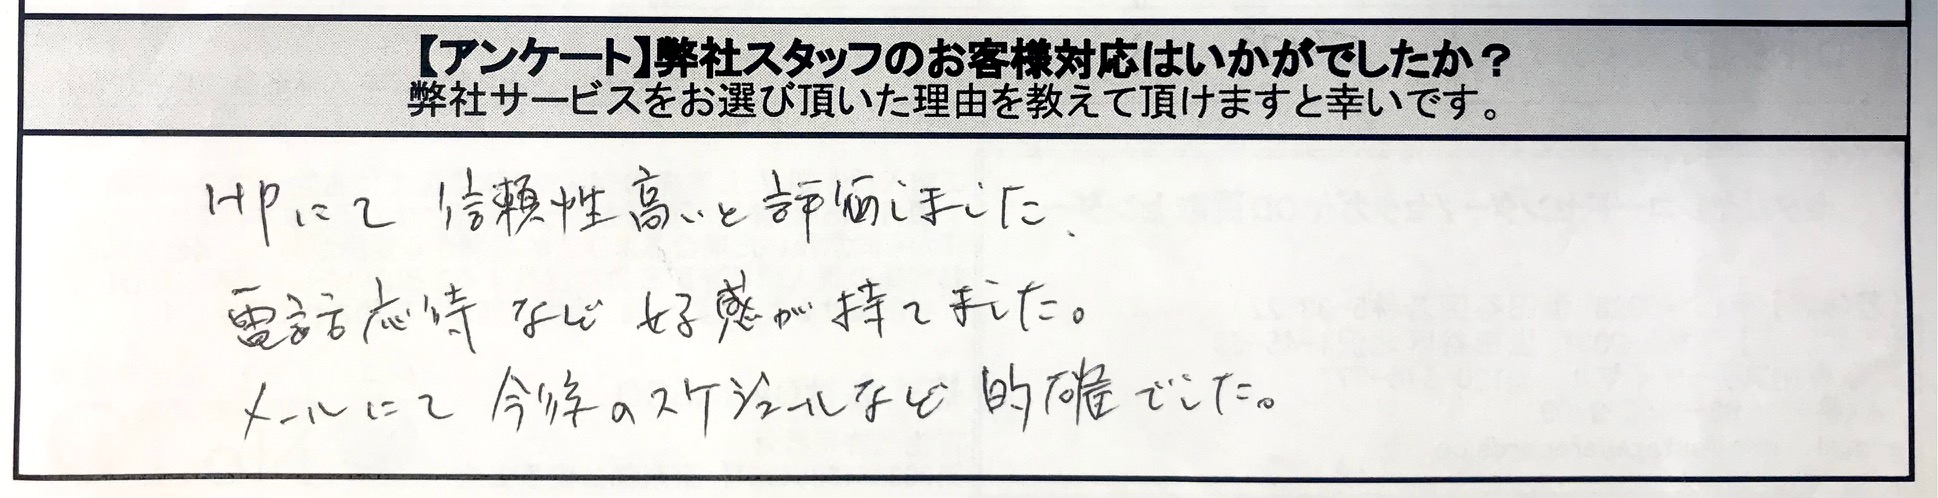 【アンケート】弊社スタッフのお客様対応はいかがでしたか？
弊社サービスをお選び頂いた理由を教えて頂けますと幸いです。
HPにて 信頼性高いと評価しました、
電話応待 など 好感が持てました。
メールにて 今後のスケジュールなど 的確でした。